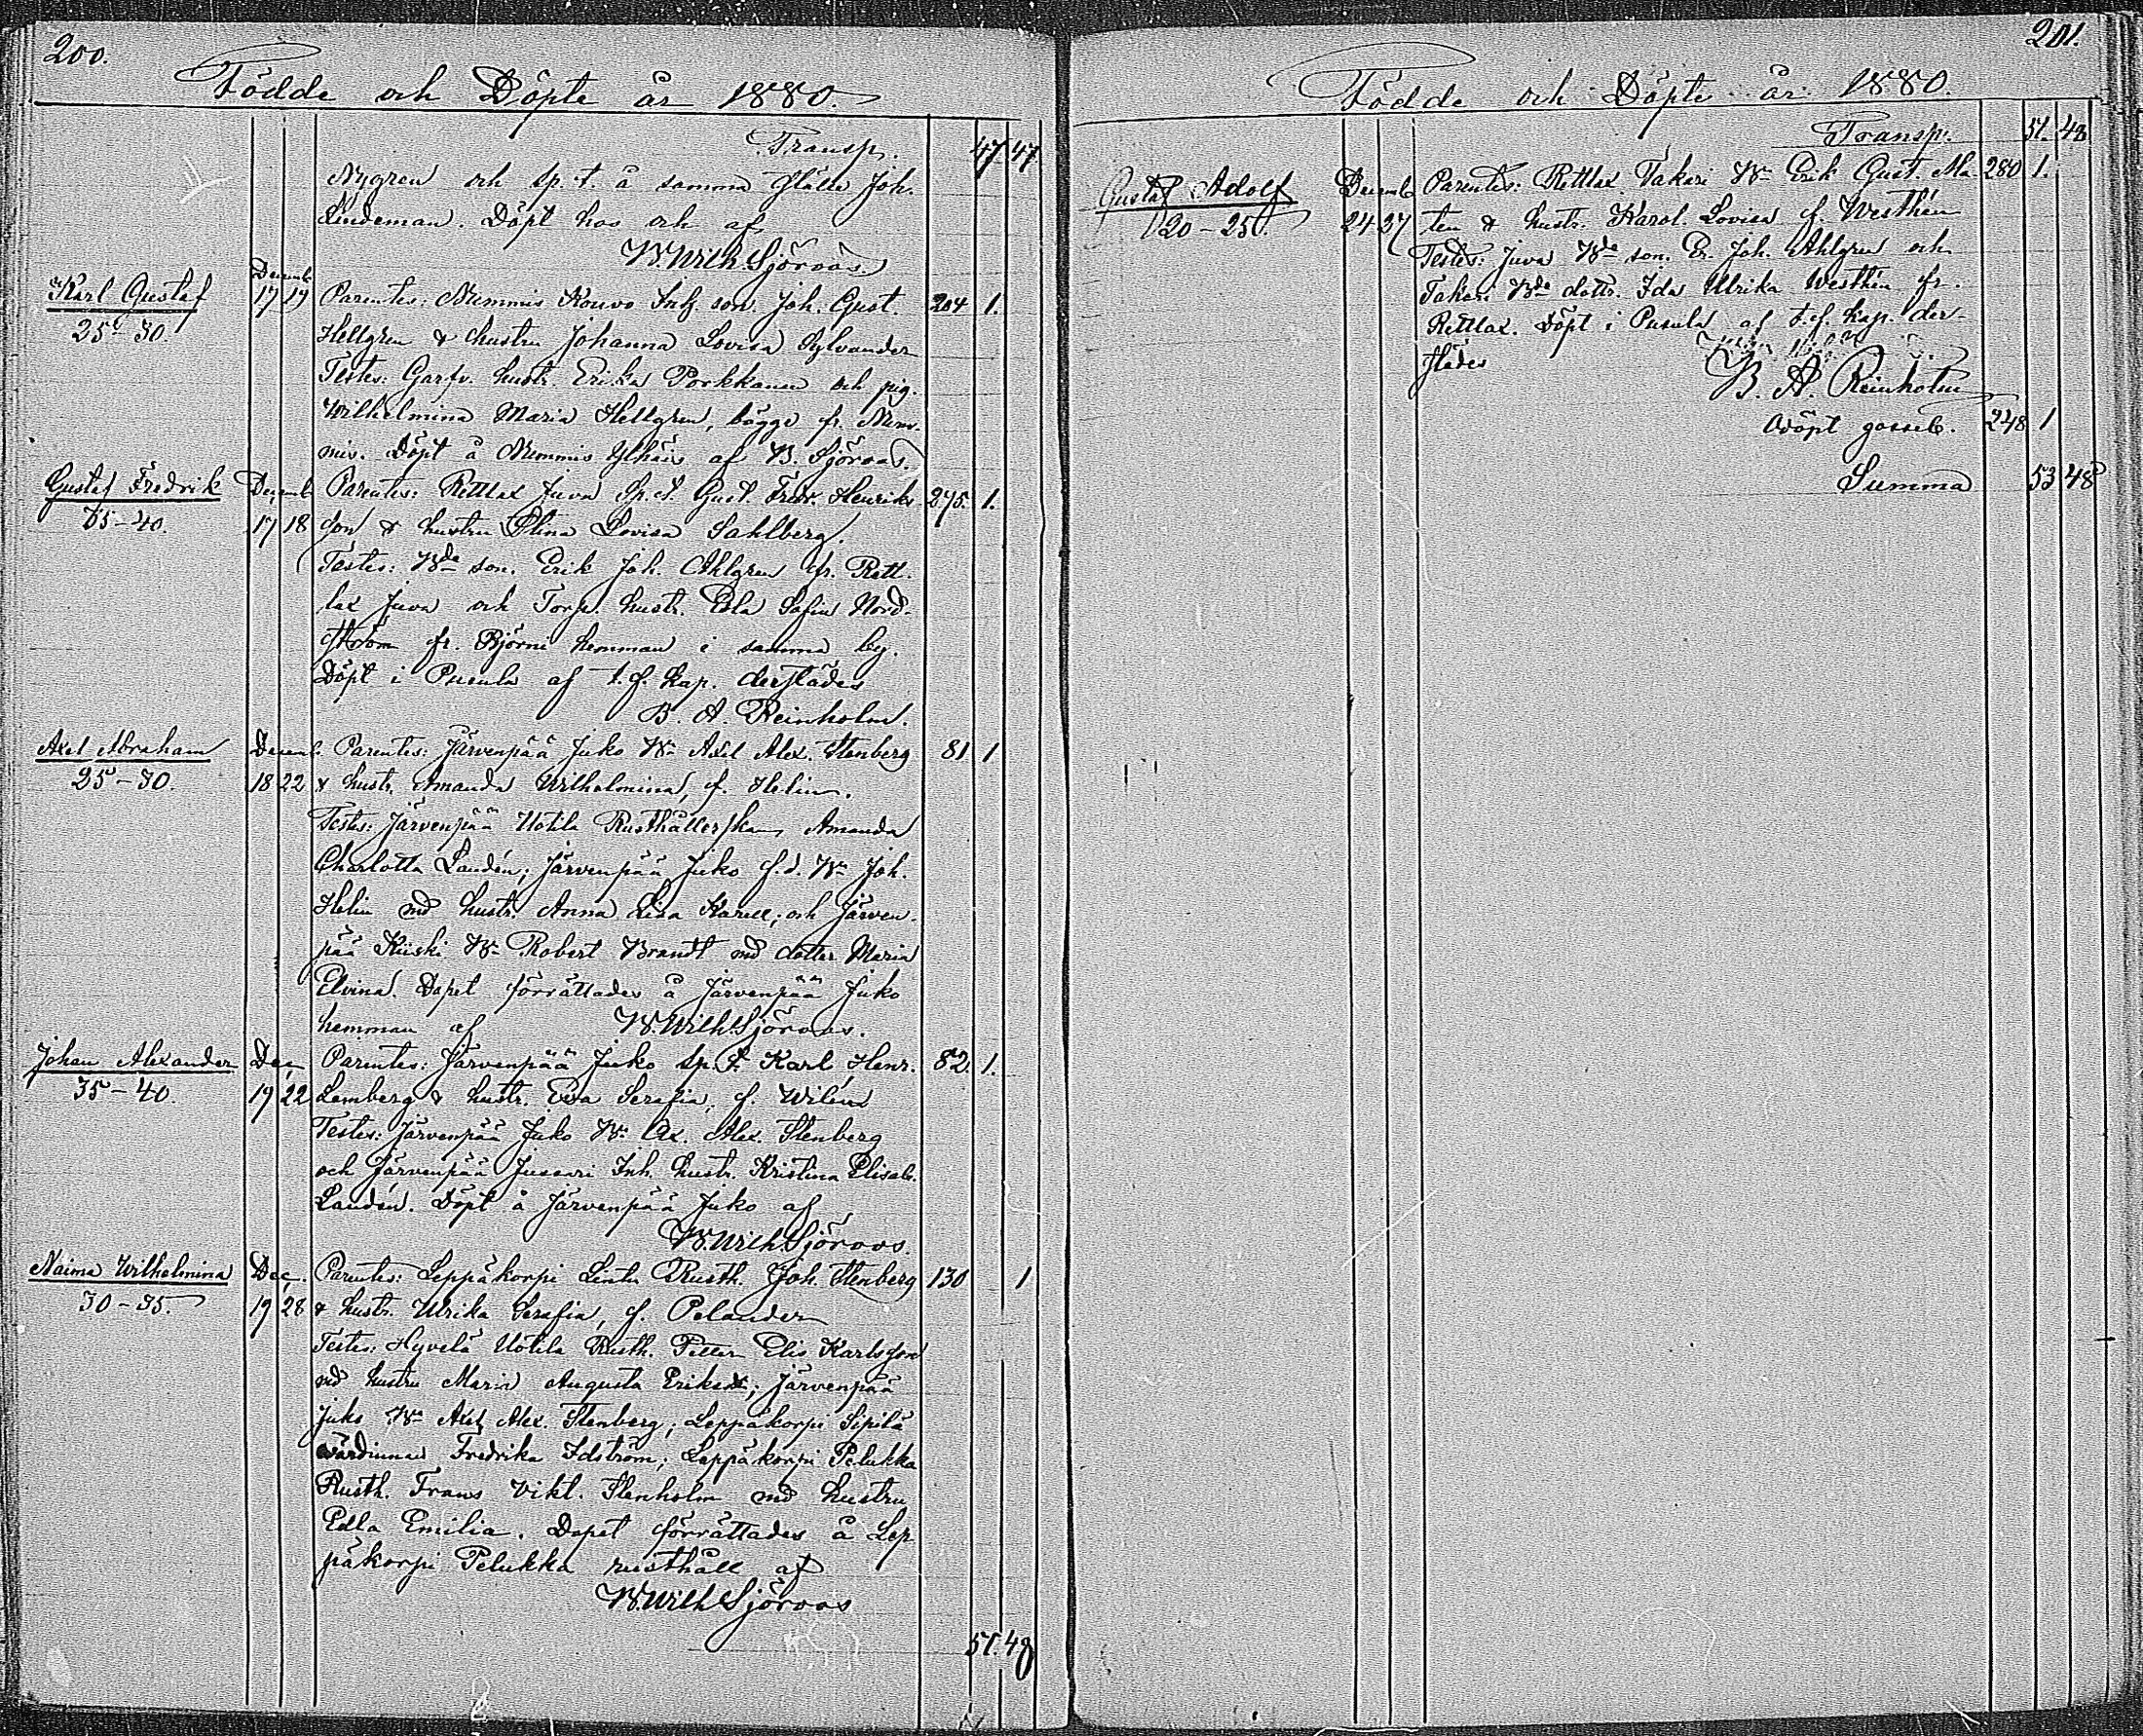 200.
Födde och Döpte år 1880.
Transp. 47 47.
Nygren och sp. t. å samma ställe Joh.
Lindeman. Döpt hos och af
W. Wilh. Sjöroos.
Karl Gustaf
25-30.
Decemb.
17 19
Parentes: Nummis Kouvo Inh. son. Joh. Gust. 204 1.
Hellgren & hustru Johanna Lovisa Sylvander
Testes: Garfv. hustr. Erika Porkkanen och pig.
Wilhelmina Maria Hellgren, bägge fr. Num-
mis. Döpt å Nummis af W. Sjöroos.
Gustaf Fredrik
35-40.
Decemb.
17 18
Parentes: Rettlax Juva Sp. t. Gust. Fredr. Henriks- 275. 1.
son & hustru Stina Lovisa Sahlberg.
Testes: Bde son. Erik Joh. Ahlgren fr. Rett-
lax Juva och Torp. hustr. Edla Sofia Nord-
ström fr. Björni hemman i samma by.
Döpt i Pusula af t. f. Kap. derstädes
B. A. Reinholm.
Axel Abraham
25-30.
Decemb.
18 22
Parentes: Järvenpää Juko Bn Axel Alex. Stenberg 81 1
& hustr. Amanda Wilhelmina, f. Helin.
Testes: Järvenpää Uotila Rusthållerskan Amanda
Charlotta Landén; Järvenpää Juko f. d. Bn Joh.
Helin md hustr. Anna Lisa Karell; och Järven-
pää Kiiski Bn Robert Brandt md dotter Maria
Elvina. Dopet förrättades å Järvenpää Juko
hemman af W. Wilh. Sjöroos.
Johan Alexander
35-40.
Dec.
19 22
Parentes: Järvenpää Juko Sp. t. Karl Henr. 82. 1.
Lemberg & hustr. Eva Serafia, f. Wilén
Testes: Järvenpää Juko Bn Ax. Alex. Stenberg
och Järvenpää Jussari Inh. hustr. Kristina Elisab.
Landén. Döpt å Järvenpää Juko af
W. Wilh. Sjöroos.
Naima Wilhelmina
30-35.
Dec.
19 28
Parentes: Leppäkorpi Lintu Rusth. Joh. Stenberg 130 1
& hustr. Ulrika Serafia, f. Pelander
Testes: Hyvelä Uotila Rusth. Petter Elis Karlsson
md hustru Maria Augusta Eriksd.; Järvenpää
Juko Bn Axel Alex. Stenberg; Leppäkorpi Sipilä
värdinnan Fredrika Idström; Leppäkorpi Pelukka
Rusth. Frans Vikt. Stenholm md hustru
Edla Emilia. Dopet förrättades å Lep-
päkorpi Pelukka rusthåll af
W. Wilh Sjöroos
51. 48
201.
Födde och Döpte år 1880.
Transp. 51. 48
Gustaf Adolf
20-25.
Decemb.
24 27
Parentes: Rettlax Takari Bn Erik Gust. Ma- 280 1.
ten & hustr. Karol. Lovisa f. Westhén
Testes: Juva Bde son. Er. Joh. Ahlgren och
Takari Bde dottr. Ida Ulrika Westhén fr.
Rettlax. Döpt i Pusula af t. f. Kap. der-
städes
B. A. Reinholm
Odöpt gosseb. 248 1
Summa 53 48